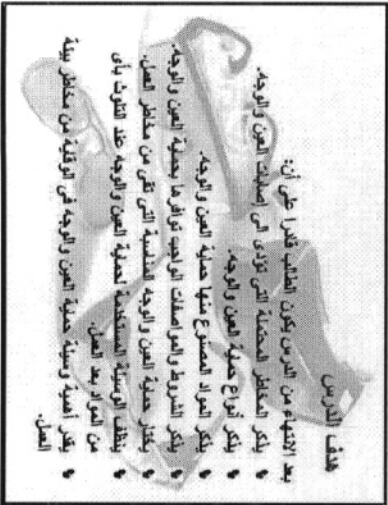 هدف الدرس
بعد الانتهاء من الدرس يكون الطالب قادرا على أن:
يذكر المخاطر المحتملة التى تؤدى الى إصابات العين والوجه.
يذكر أنواع حماية العين والوجه.
يذكر المواد المصنوع منها حماية العين والوجه.
يذكر الشروط والمواصفات الواجب توافرها بحماية العين والوجه.
يختار حماية العين والوجه المناسبة التى تقى من مخاطر العمل.
ينظف الوسيلة المستخدمة لحماية العين والوجه عند التلوث بأى
من المواد بعد العمل.
يقدر أهمية وسيلة حماية العين والوجه فى الوقاية من مخاطر بيئة
العمل.